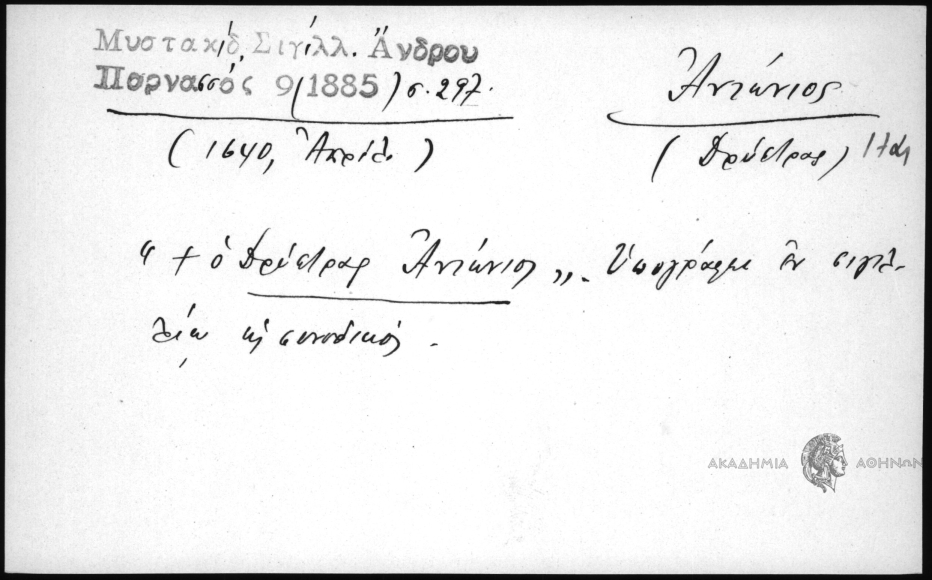 Μυστακίδ, Σιγίλλ. Ἄνδρου
Παρνασσός 9 (1885) σ. 297.
(1640, Ἀπρίλ.)
Ἀντώνιος
(Δρύστρας)
" + ὁ Δρύστρας Ἀντώνιος „. Ὑπογράφει ἐν σιγιλ-
λίῳ ὡς συνοδικός.
ΑΚΑΔΗΜΙΑ ΑΘΗΝΩΝ